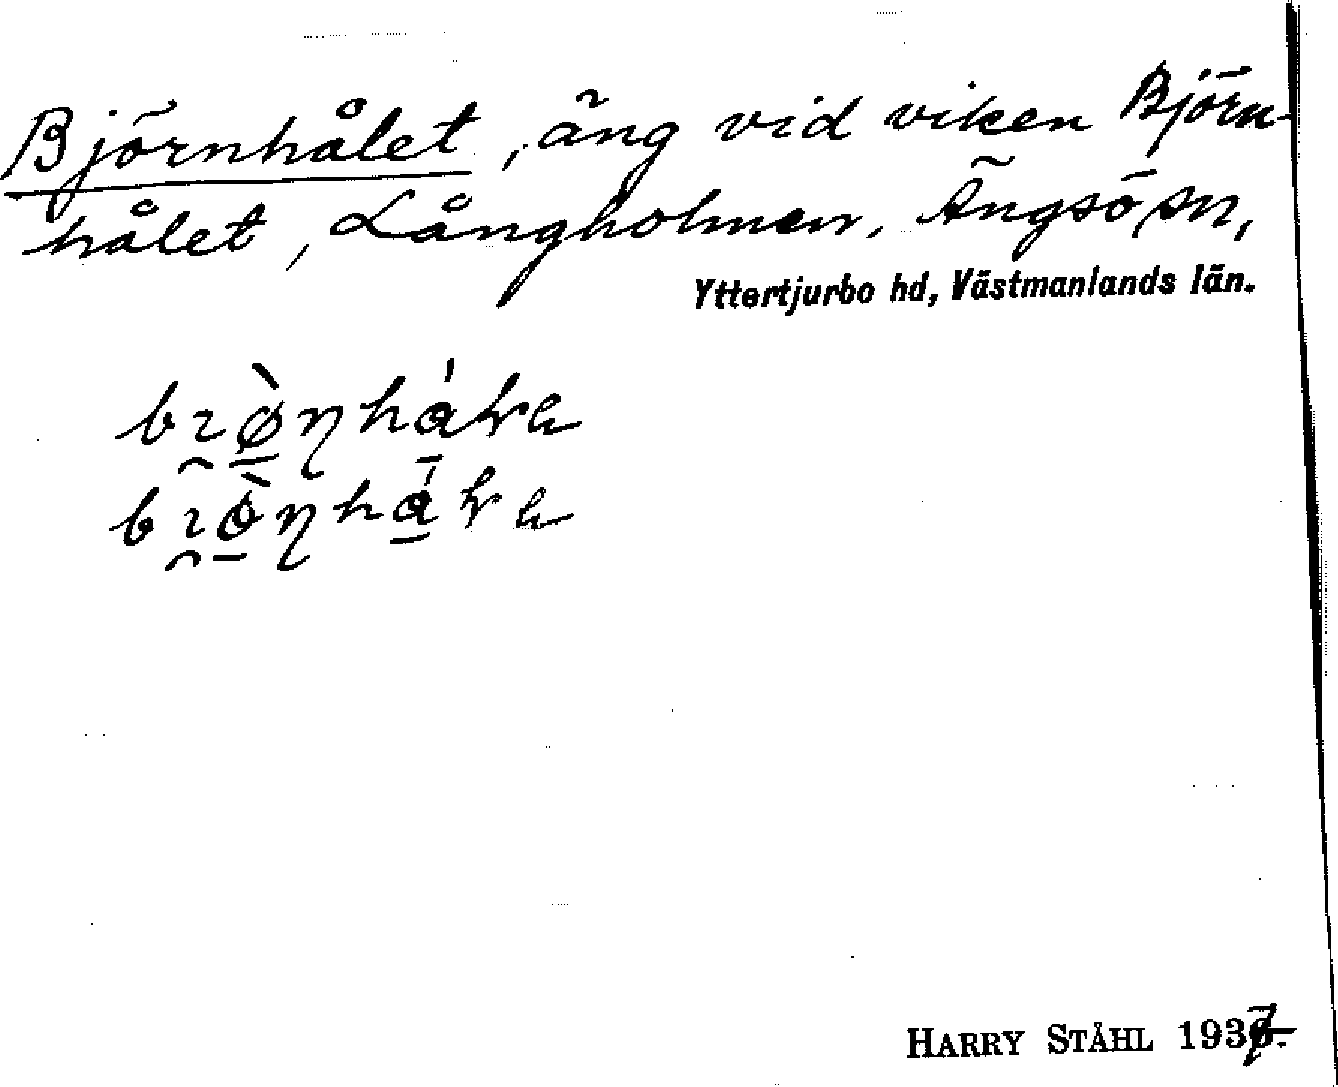 Björnhålet, äng vid viken Björn-
hålet, Långholmen, Ängsö sn,
Yttertjurbo hd, Västmanlands län.
HARRY STÅHL 1937.